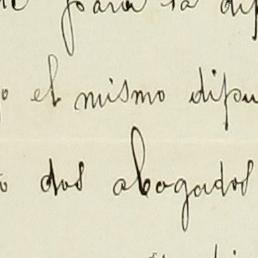 para la
o el mismo dipu
o dos abogados